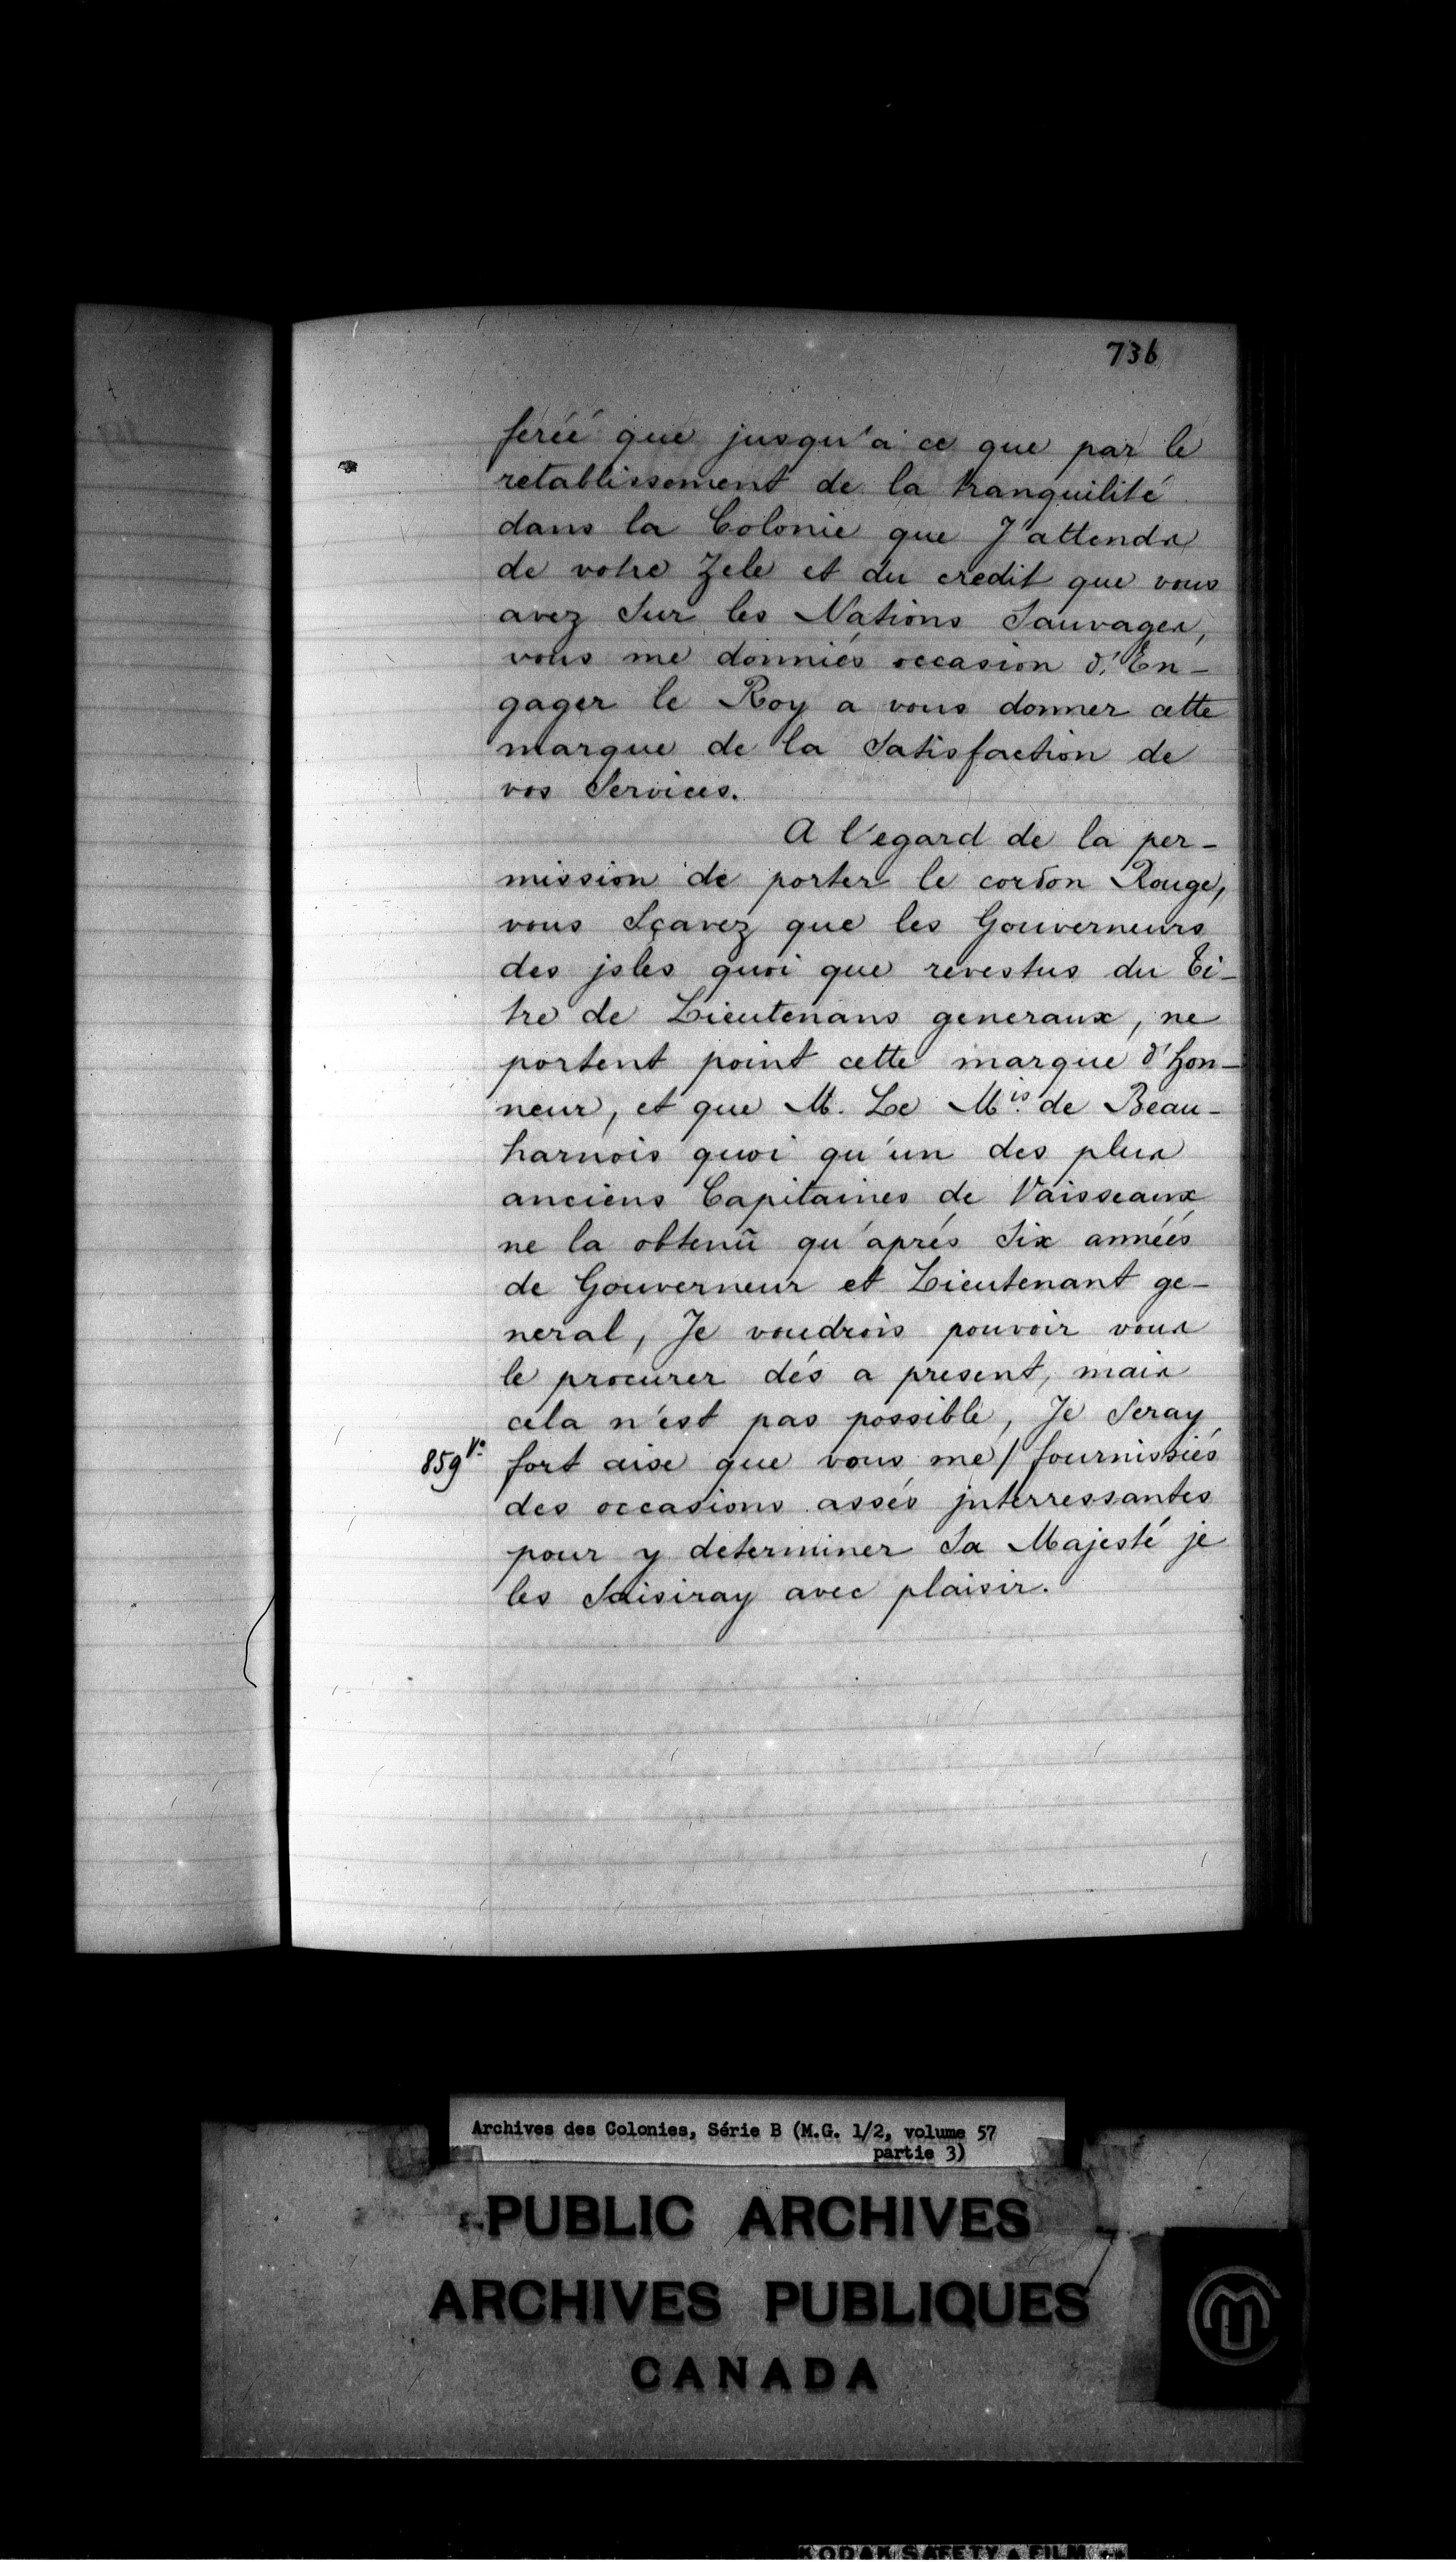 736
feréé que jusqu'a ce que par le
retablissement de la tranquilité
dans la Colonie que J'attends
de votre Zele et du credit que vous
avez Sur les Nations Sauvages,
vous me donniés occasion d'En-
gager le Roy a vous donner cette
marque de la Satisfaction de
vos Services.
A l'egard de la per-
mission de porter le cordon Rouge,
vous Sçavez que les Gouverneurs
des jsles quoi que revestus du Ti-
tre de Lieutenans generaux, ne
portent point cette marque d'hon-
neur, et que M. Le Mis. de Beau-
harnois quoi qu'un des plus
anciens Capitaines de Vaisseaux
ne la obtenü qu'aprés Six annéés
de Gouverneur et Lieutenant ge-
neral, Je voudrois pouvoir vous
le procurer dés a present, mais
cela n'est pas possible, Je Seray
859 Vo. fort aise que vous me/ fournissiés
des occasions assés jnterressantes
pour y determiner Sa Majesté je
les Saisiray avec plaisir.
Archives des Colonies, Série B (M.G. 1/2, volume 57
partie 3)
PUBLIC ARCHIVES
ARCHIVES PUBLIQUES
CANADA
KODAK SAFETY FILM